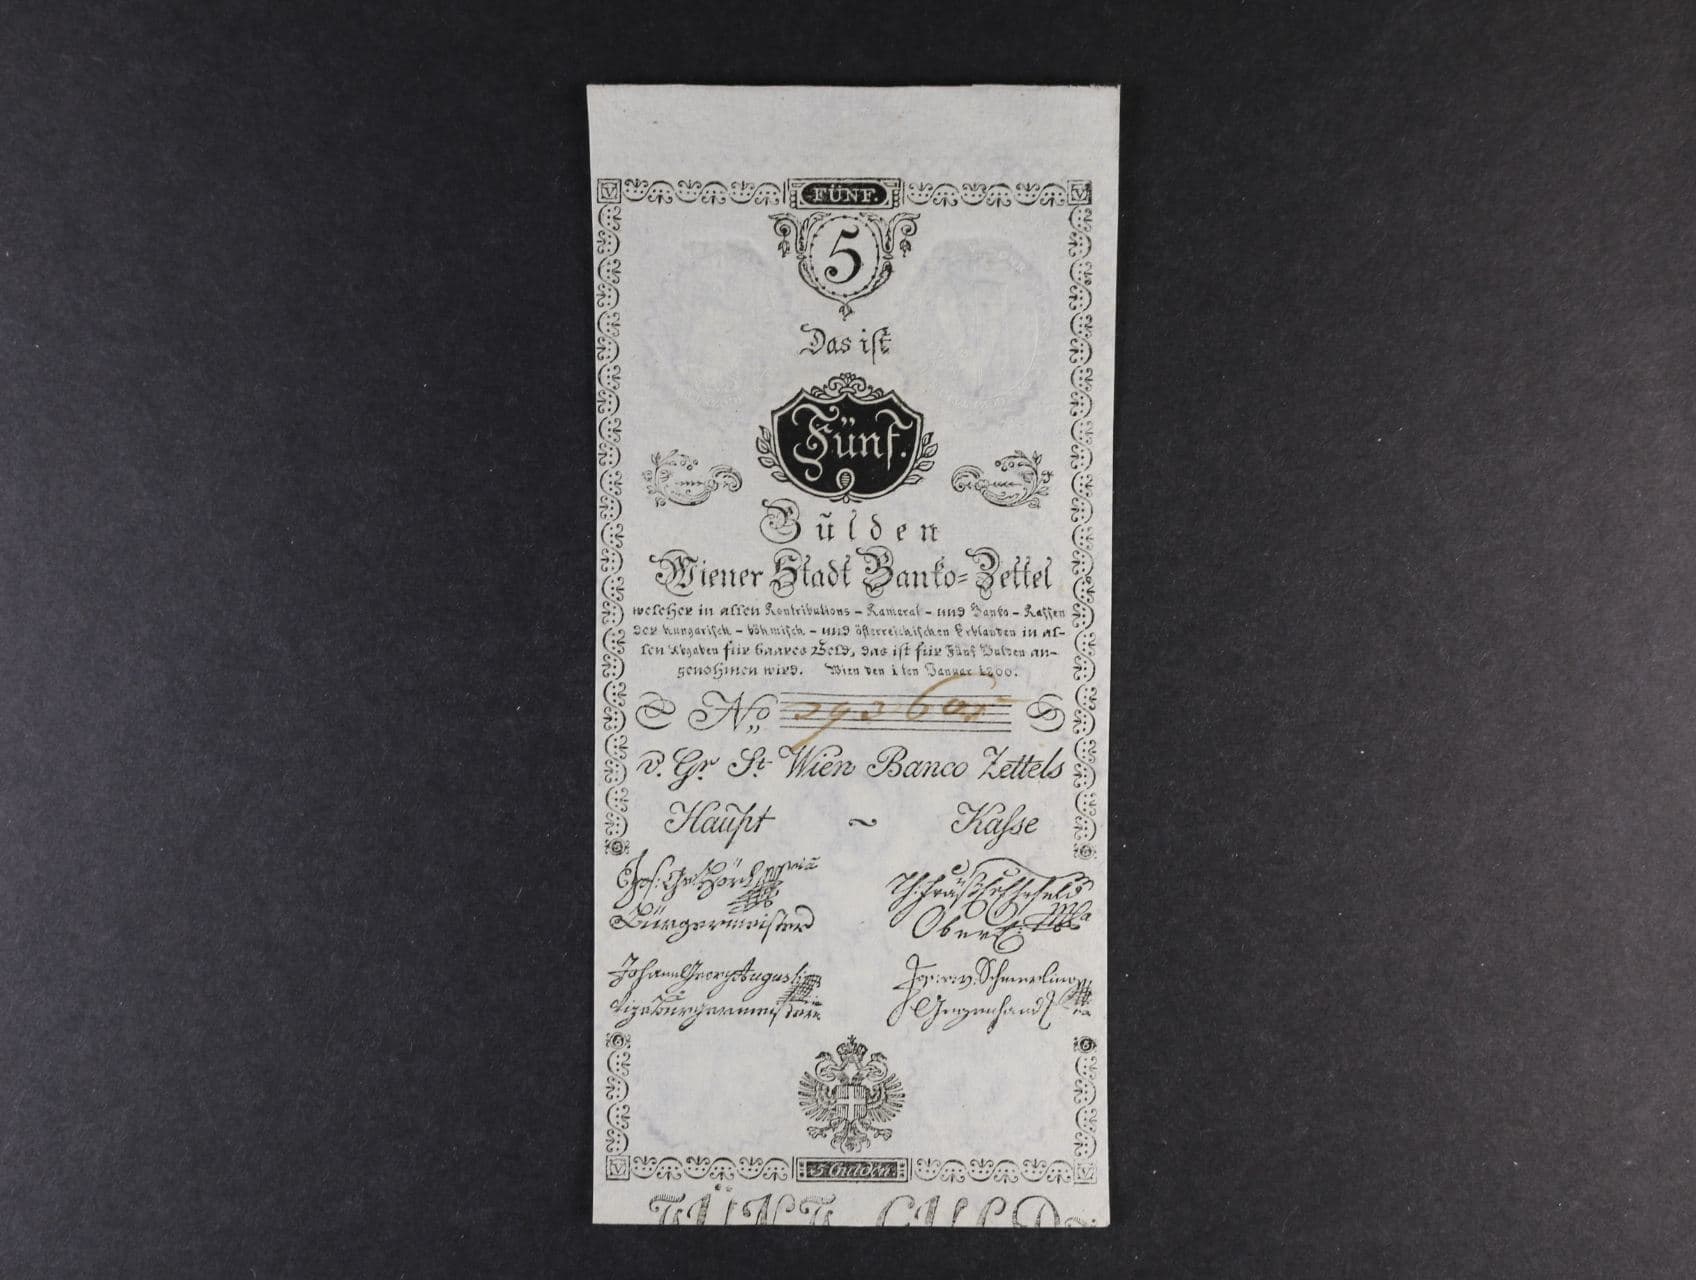 V FÜNF. V
5
Das ist
Fünf.
Gulden
Wiener Stadt Banko=Zettel
welcher in allen Kontributions - Kameral - und Banko - Kassen
der hungarisch - böhmisch - und österreichischen Erblanden in al-
len Abgaben für baares Geld, das ist für Fünf Gulden an-
genohmen wird. Wien den 1ten Januar 1800.
No
v. Gr St Wien Banco Zettels
Haupt ~ Kasse
5 5
Bürgermeister Ober
Johann Georg Augusti Schmerling
Vizebürgermeister Gegenhand
5 5
V 5 Gulden. V
FÜNF GULD